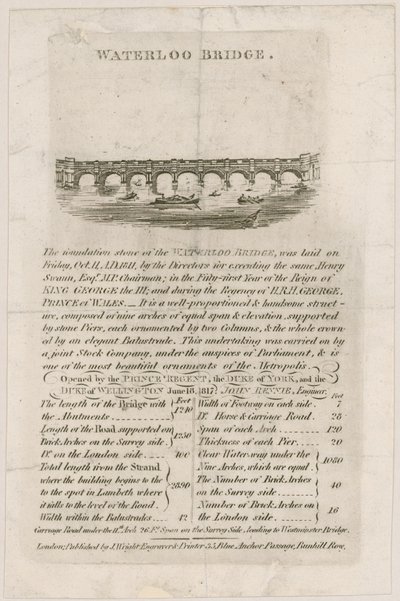 WATERLOO BRIDGE.
The foundation stone of the WATERLOO BRIDGE, was laid on
Friday, Oct. 11, A.D. 1811, by the Directors for executing the same Henry
Swann, Esqr. M.P. Chairman; in the Fifty-first Year of the Reign of
KING GEORGE the III; and during the Regency of H.R.H. GEORGE,
PRINCE of WALES. — It is a well-proportioned & handsome struct-
ure, composed of nine arches of equal span & elevation, supported
by stone Piers, each ornamented by two Columns, & the whole crown-
ed by an elegant Balustrade. This undertaking was carried on by
a joint Stock Company, under the auspices of Parliament, & is
one of the most beautiful ornaments of the Metropolis.
Opened by the PRINCE REGENT, the DUKE of YORK, and the
DUKE of WELLINGTON June 18, 1817. JOHN RENNIE, Engineer.
The length of the Bridge with Feet
the Abutments 1240
Length of the Road supported on
Brick Arches on the Surrey side 1250
Do. on the London side 400
Total length from the Strand
where the building begins to the
to the spot in Lambeth where 2890
it falls to the level of the Road.
Width within the Balustrades 42
Feet
Width of Footway on each side 7
Do. Horse & Carriage Road 28
Span of each Arch 120
Thickness of each Pier 20
Clear Water-way under the
Nine Arches, which are equal 1080
The Number of Brick Arches
on the Surrey side 40
Number of Brick Arches on
the London side 16
Carriage Road under the Arch 26 Ft. Span on the Surrey Side, leading to Westminster Bridge.
London; Published by J. Wright Engraver & Printer 35, Blue Anchor Passage, Bunhill Row,